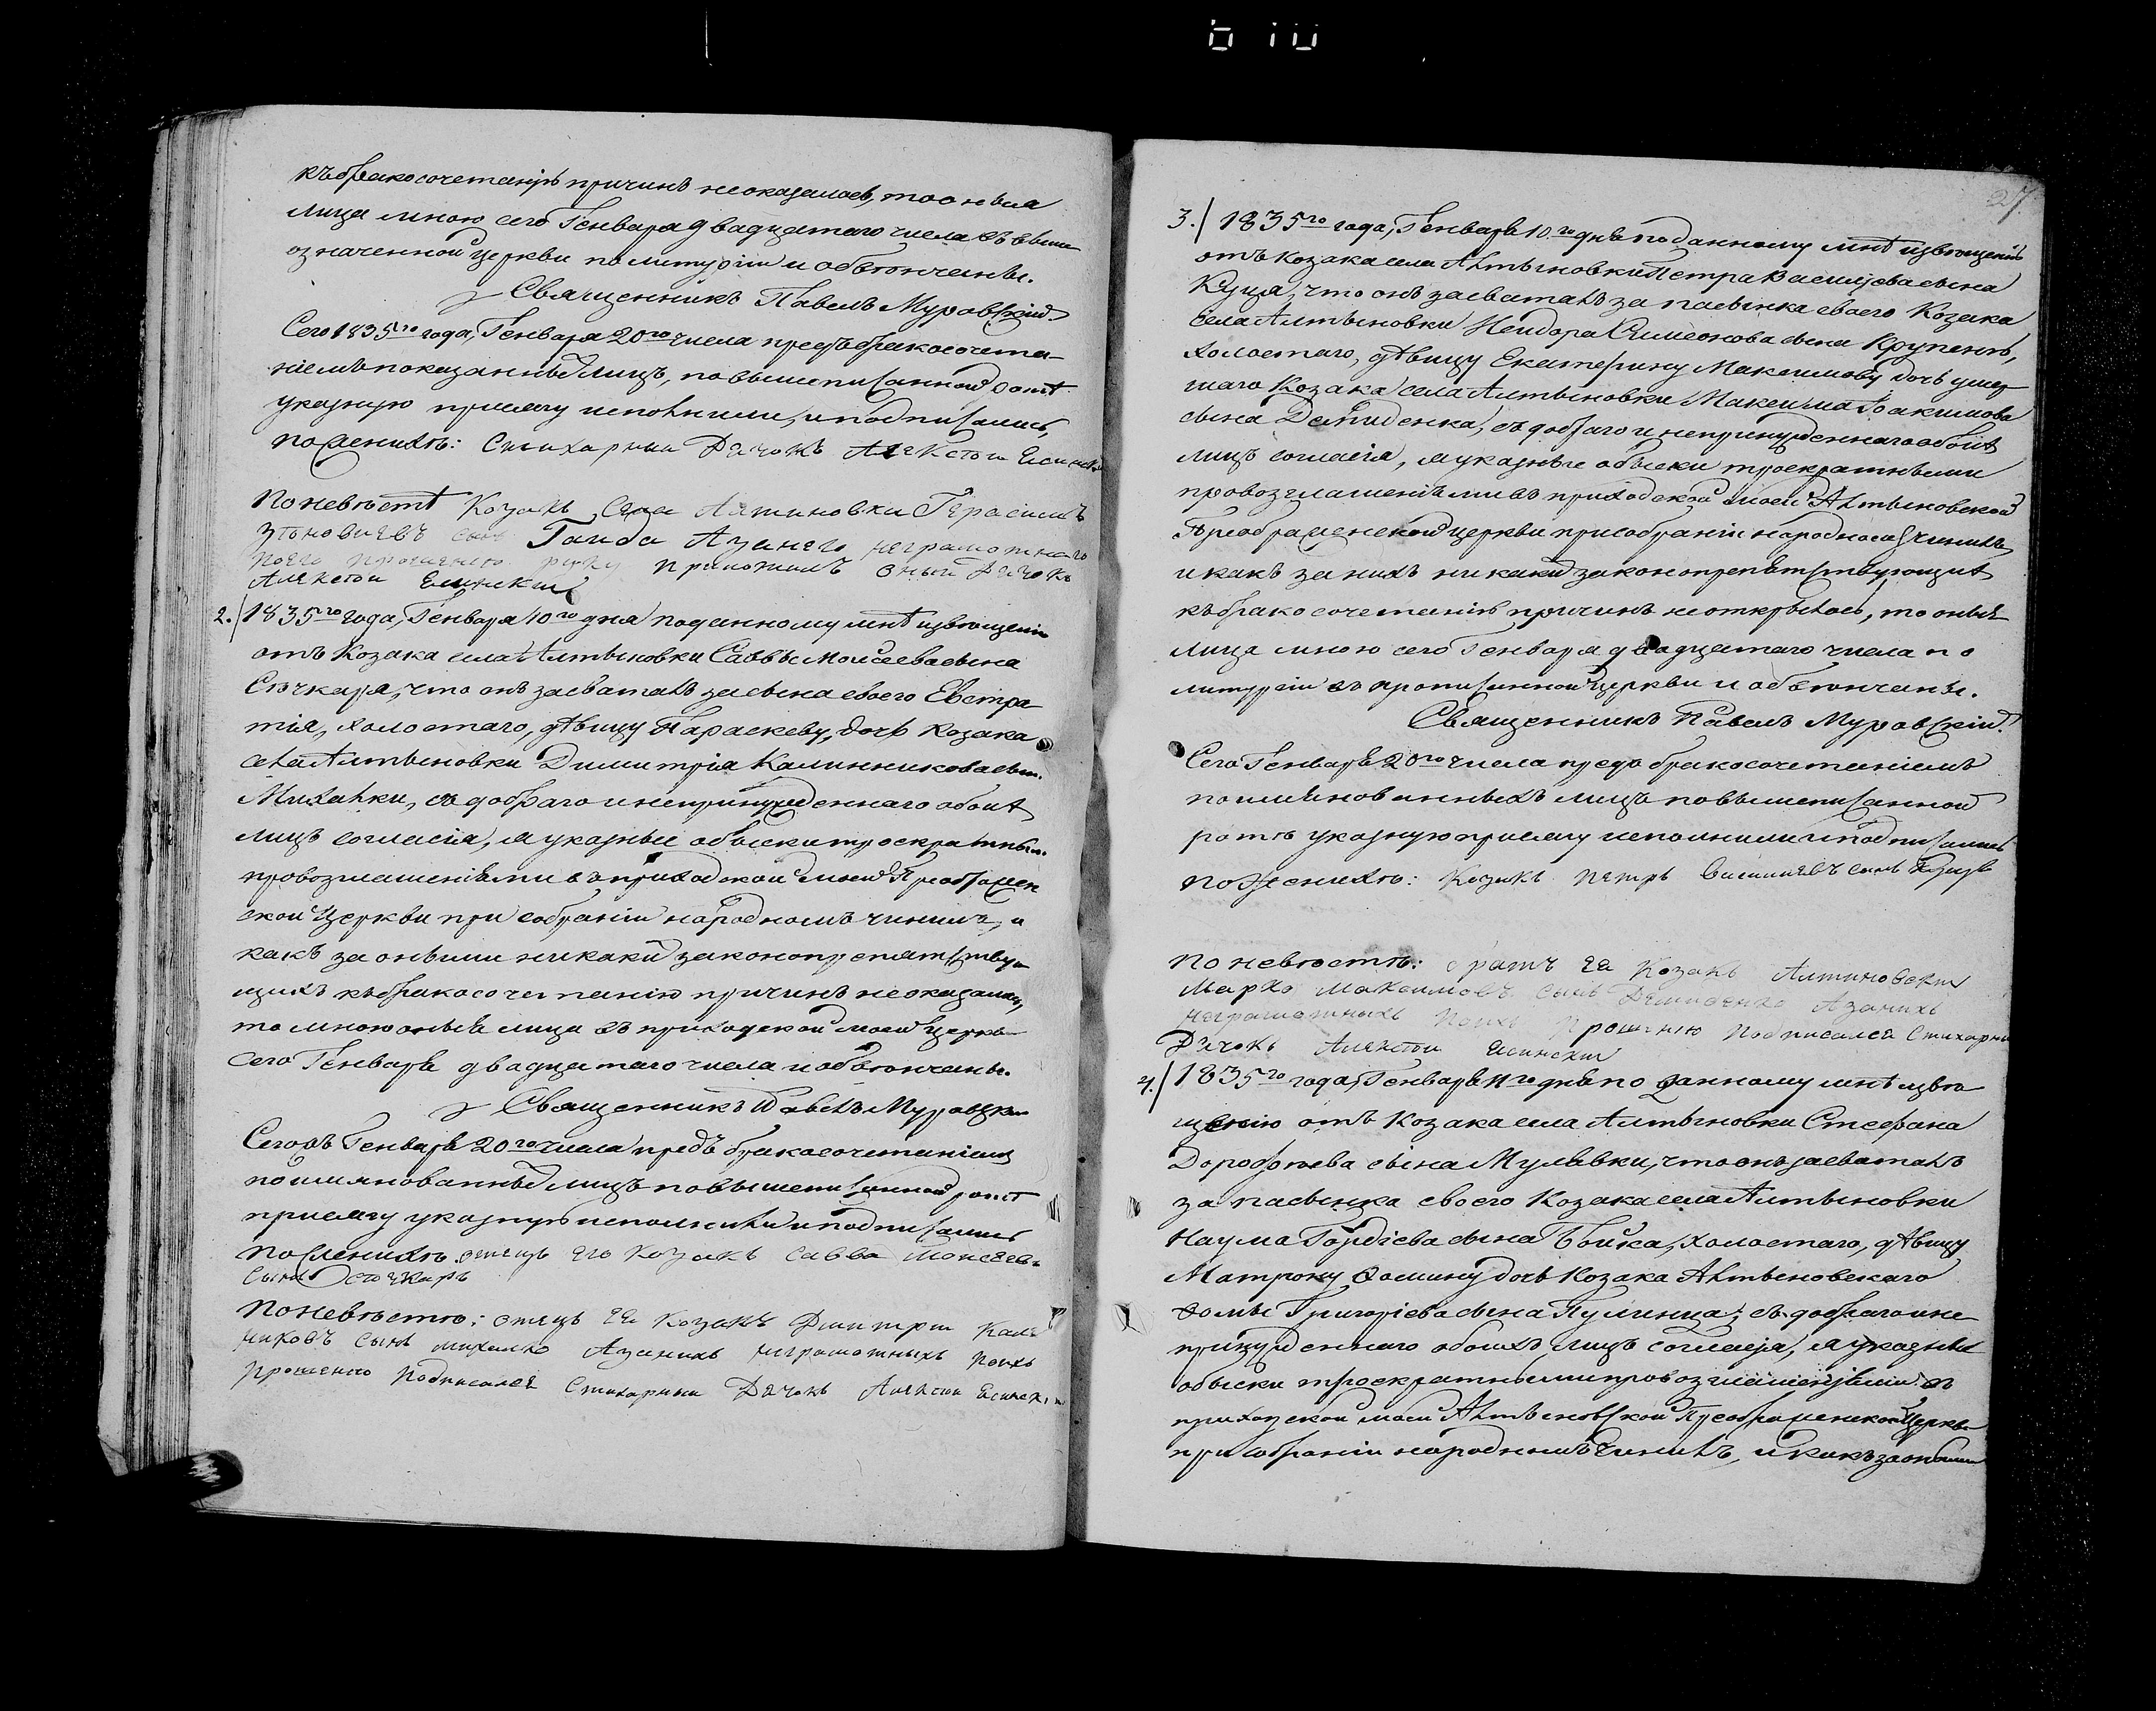 къ бракосочетанію причинъ неоказалось, то оныя
лица мною сего Генваря двадцатаго числа въ выше
означенной церкви по литургіи и обвѣнчаны.
Священникъ Павелъ Муровскій
Сего 1835го года, Генваря 20го числа предъ бракосочета-
ніемъ показанныхъ лицъ, по вышеписанной ротѣ
указную присягу исполнили, и подписались,
по женихѣ: Стихарный Дячокъ Алексѣй
По невѣстѣ Козакъ Села Алтиновки Герасимъ
сынъ Гаида Азанего неграмотнаго
поего прошенію руку приложилъ оный Дячокъ
Алексѣй
2. 1835го года, Генваря 10го дня поданному мнѣ извѣщенію
отъ Козака села Алтыновки Саввы Моисеева сына
Стчкаря, что онъ засваталъ за сына своего Евстра
тія, холостаго, дѣвицу Параскеву, дочь Козака
села Алтыновки Димитрія Калинникова сын.
Михалки, съ добраго и непринужденнаго обоихъ
лицъ согласія, я указные обыски троекратным.
провозглашеніями въ приходской моей Преображен
ской Церкви при собраніи народномъ чинилъ, и
какъ за оными никакихъ законопрепятствую
щихъ къ бракосочетанію причинъ неоказалось,
то мною оныя лица въ приходской моей Церкви
сего Генваря двадцатаго числа и обвѣнчаны.
Священникъ Павелъ Муровскій
Сего Генваря 20го числа предъ бракосочетаніемъ
поимянованныхъ лицъ по вышеписанной ротѣ
присягу указную исполнили и подписались
По женихѣ отецъ его козакъ Савва Моисеев.
сынъ Стчкаръ
По невѣстѣ: отецъ ея Козакъ Дмитрій Кали
никовъ сынъ михалко Азанихъ неграмотныхъ поихъ
прошенію Подписался Стихарный Дячокъ Алексѣй
27.
3. 1835го года, Генваря 10го дня поданному мнѣ извѣщенію
отъ Козака села Алтыновки Петра Василіева сына
Куца, что онъ засваталъ за пасынка своего Козака
села Алтыновки Сѵмеонова сына Крупенѣ,
холостаго, дѣвицу Екатерину Максимову дочь умер
шаго Козака села Алтыновки Максима Іоакимова
сына Демиденка, съ добраго и непринужденнаго обоихъ
лицъ согласія, я указные обыски троекратными
провозглашеніями въ приходской моей Алтыновской
Преображенской церкви при собраніи народномъ чинилъ,
и какъ за нихъ никакихъ законопрепятствующихъ
къ бракосочетанію причинъ не открылось, то оныя
лица мною сего Генваря двадцатаго числа по
литургіи въ прописанной церкви и обвѣнчаны.
Священникъ Павелъ Муровскій.
Сего Генваря 20го числа предъ бракосочетаніемъ
поимянованныхъ лицъ по вышеписанной
ротѣ указную присягу исполнили и подписались
По женихѣ: Козакъ Петръ Василиевъ сынъ Куцъ
По невѣстѣ: братъ ея Козакъ Алтиновски
Марко Максимовъ сынъ Демиденко Азанихъ
неграмотныхъ Поихъ Прошенію Подписался Стихарны
Дячокъ Алексѣй
4. 1835го года, Генваря 11го дня по данному мнѣ извѣ
щенію отъ Козака села Алтыновки Стефана
Дорофѣева сына Мулявки, что онъ засваталъ
за пасынка своего Козака села Алтыновки
Наума Гордіева сына Бойка, холостаго, дѣвицу
Матрону Ѳомину дочь Козака Алтыновскаго
Ѳомы Григоріева сына Пулинца, съ добраго и не
принужденнаго обоихъ лицъ согласія, я указные
обыски троекратными провозглашеніями въ
приходской моей Алтыновской Преображенской Церкви
при собраніи народномъ чинилъ, и какъ за оными